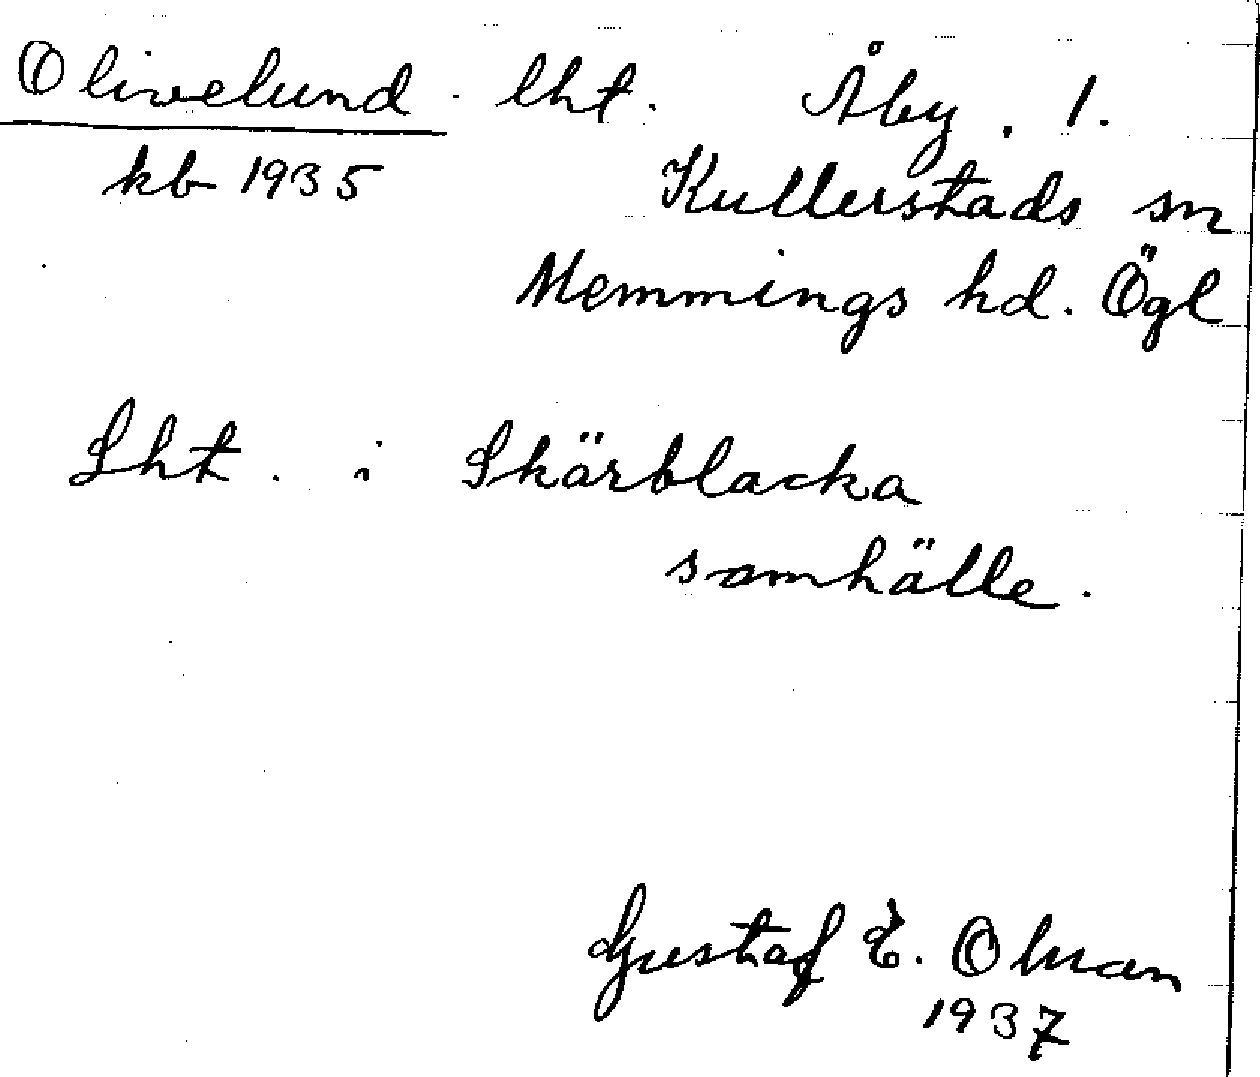 Olivelund lht. Åby. 1.
kb 1935 Kullerstads sn
Memmings hd. Ögl
Lht. i Skärblacka
samhälle.
Gustaf E. Olman
1937